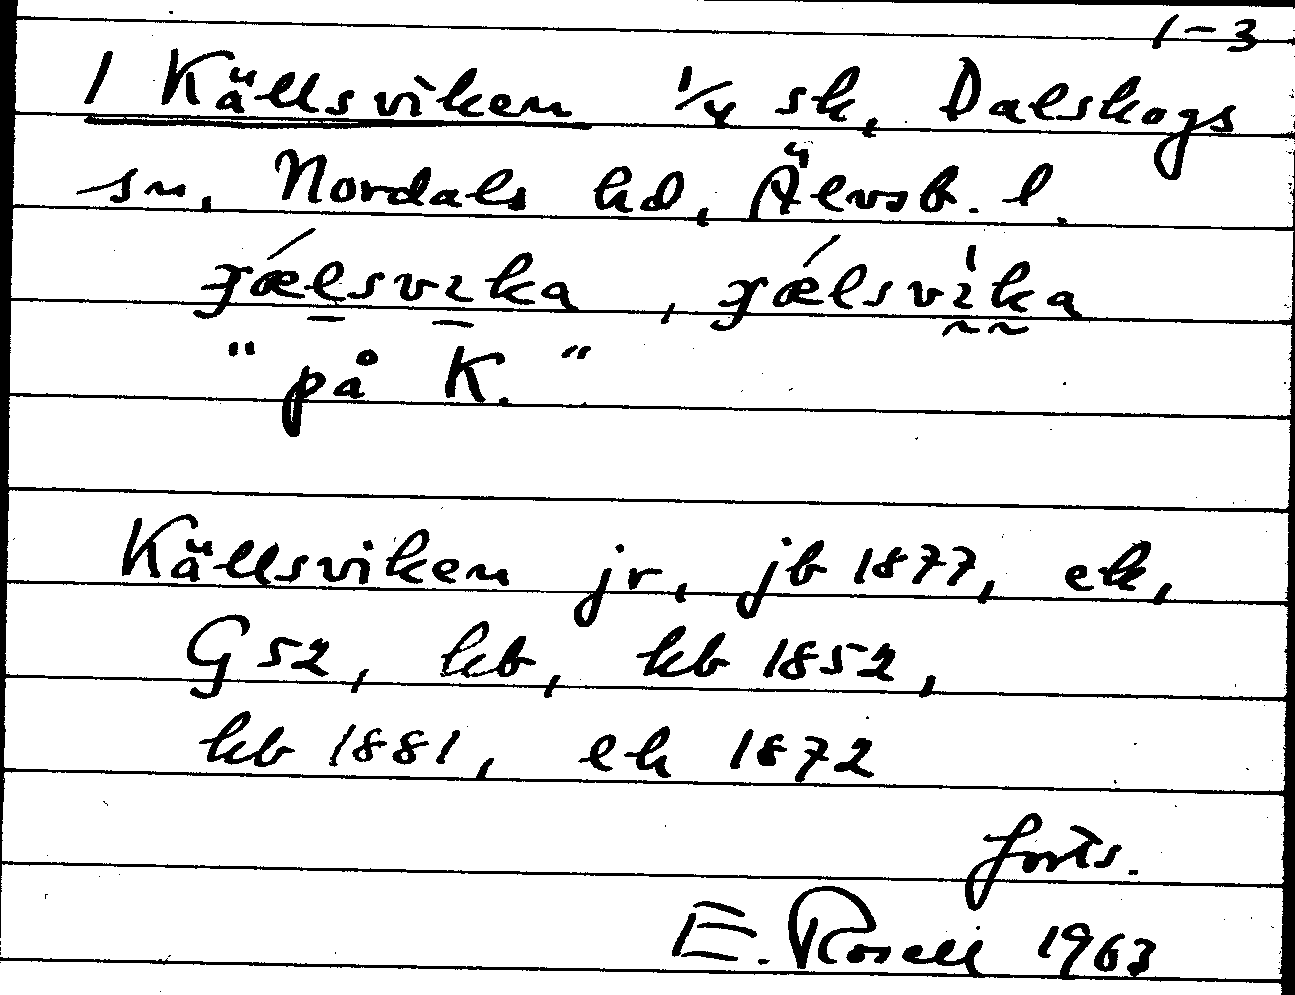 1-3
1 Källsviken 1/4 sk, Dalskogs
sn, Nordals hd, Älvsb. l.
"på K."
Källsviken jr, jb 1877, ek,
G52, kb, kb 1852,
kb 1881, ek 1872
forts.
E. Rosell 1963